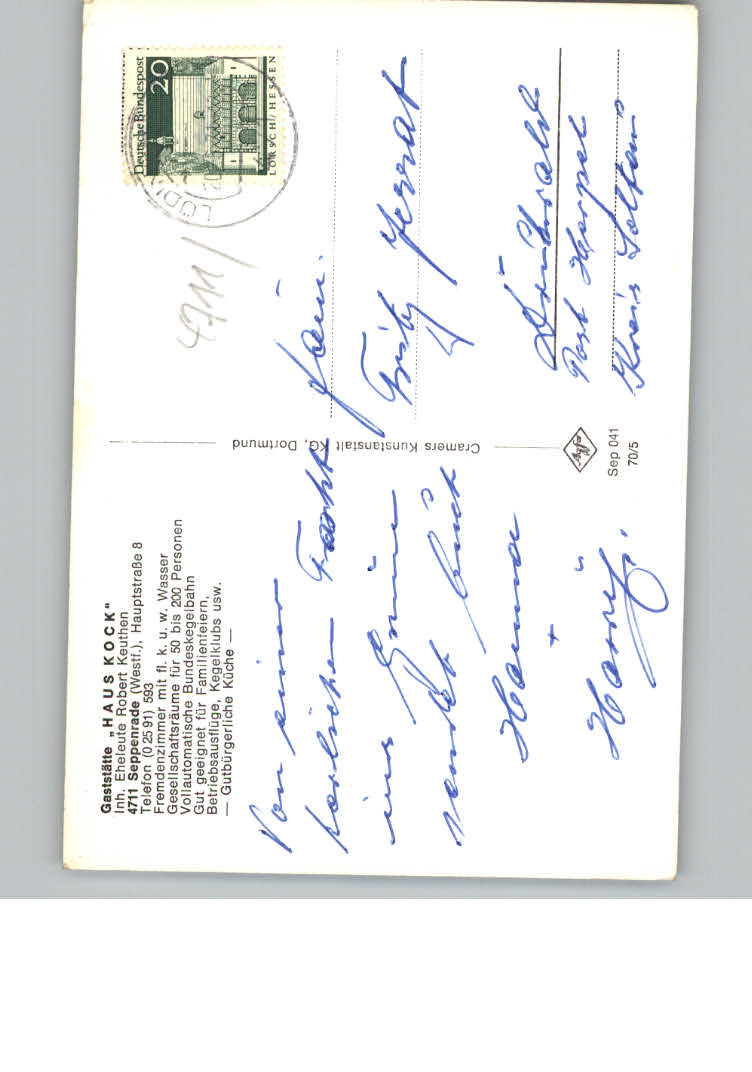 Gaststätte „HAUS KOCK"
Inh. Eheleute Robert Keuthen
4711 Seppenrade (Westf.), Hauptstraße 8
Telefon (0 25 91) 593
Fremdenzimmer mit fl. k. u. w. Wasser
Gesellschaftsräume für 50 bis 200 Personen
Vollautomatische Bundeskegelbahn
Gut geeignet für Familienfeiern,
Betriebsausflüge, Kegelklubs usw.
— Gutbürgerliche Küche —
Von einer
herlichen Fahrt
ins Grüne
sendet Euch
Hanna
+
Harry.
Cramers Kunstanstalt KG, Dortmund
Agfa
Sep 041
70/5
Deutsche Bundespost
20
LORSCH / HESSEN
LÜDIN
20
4711/
Fam.
Fritz
Post
Kreis Soltau